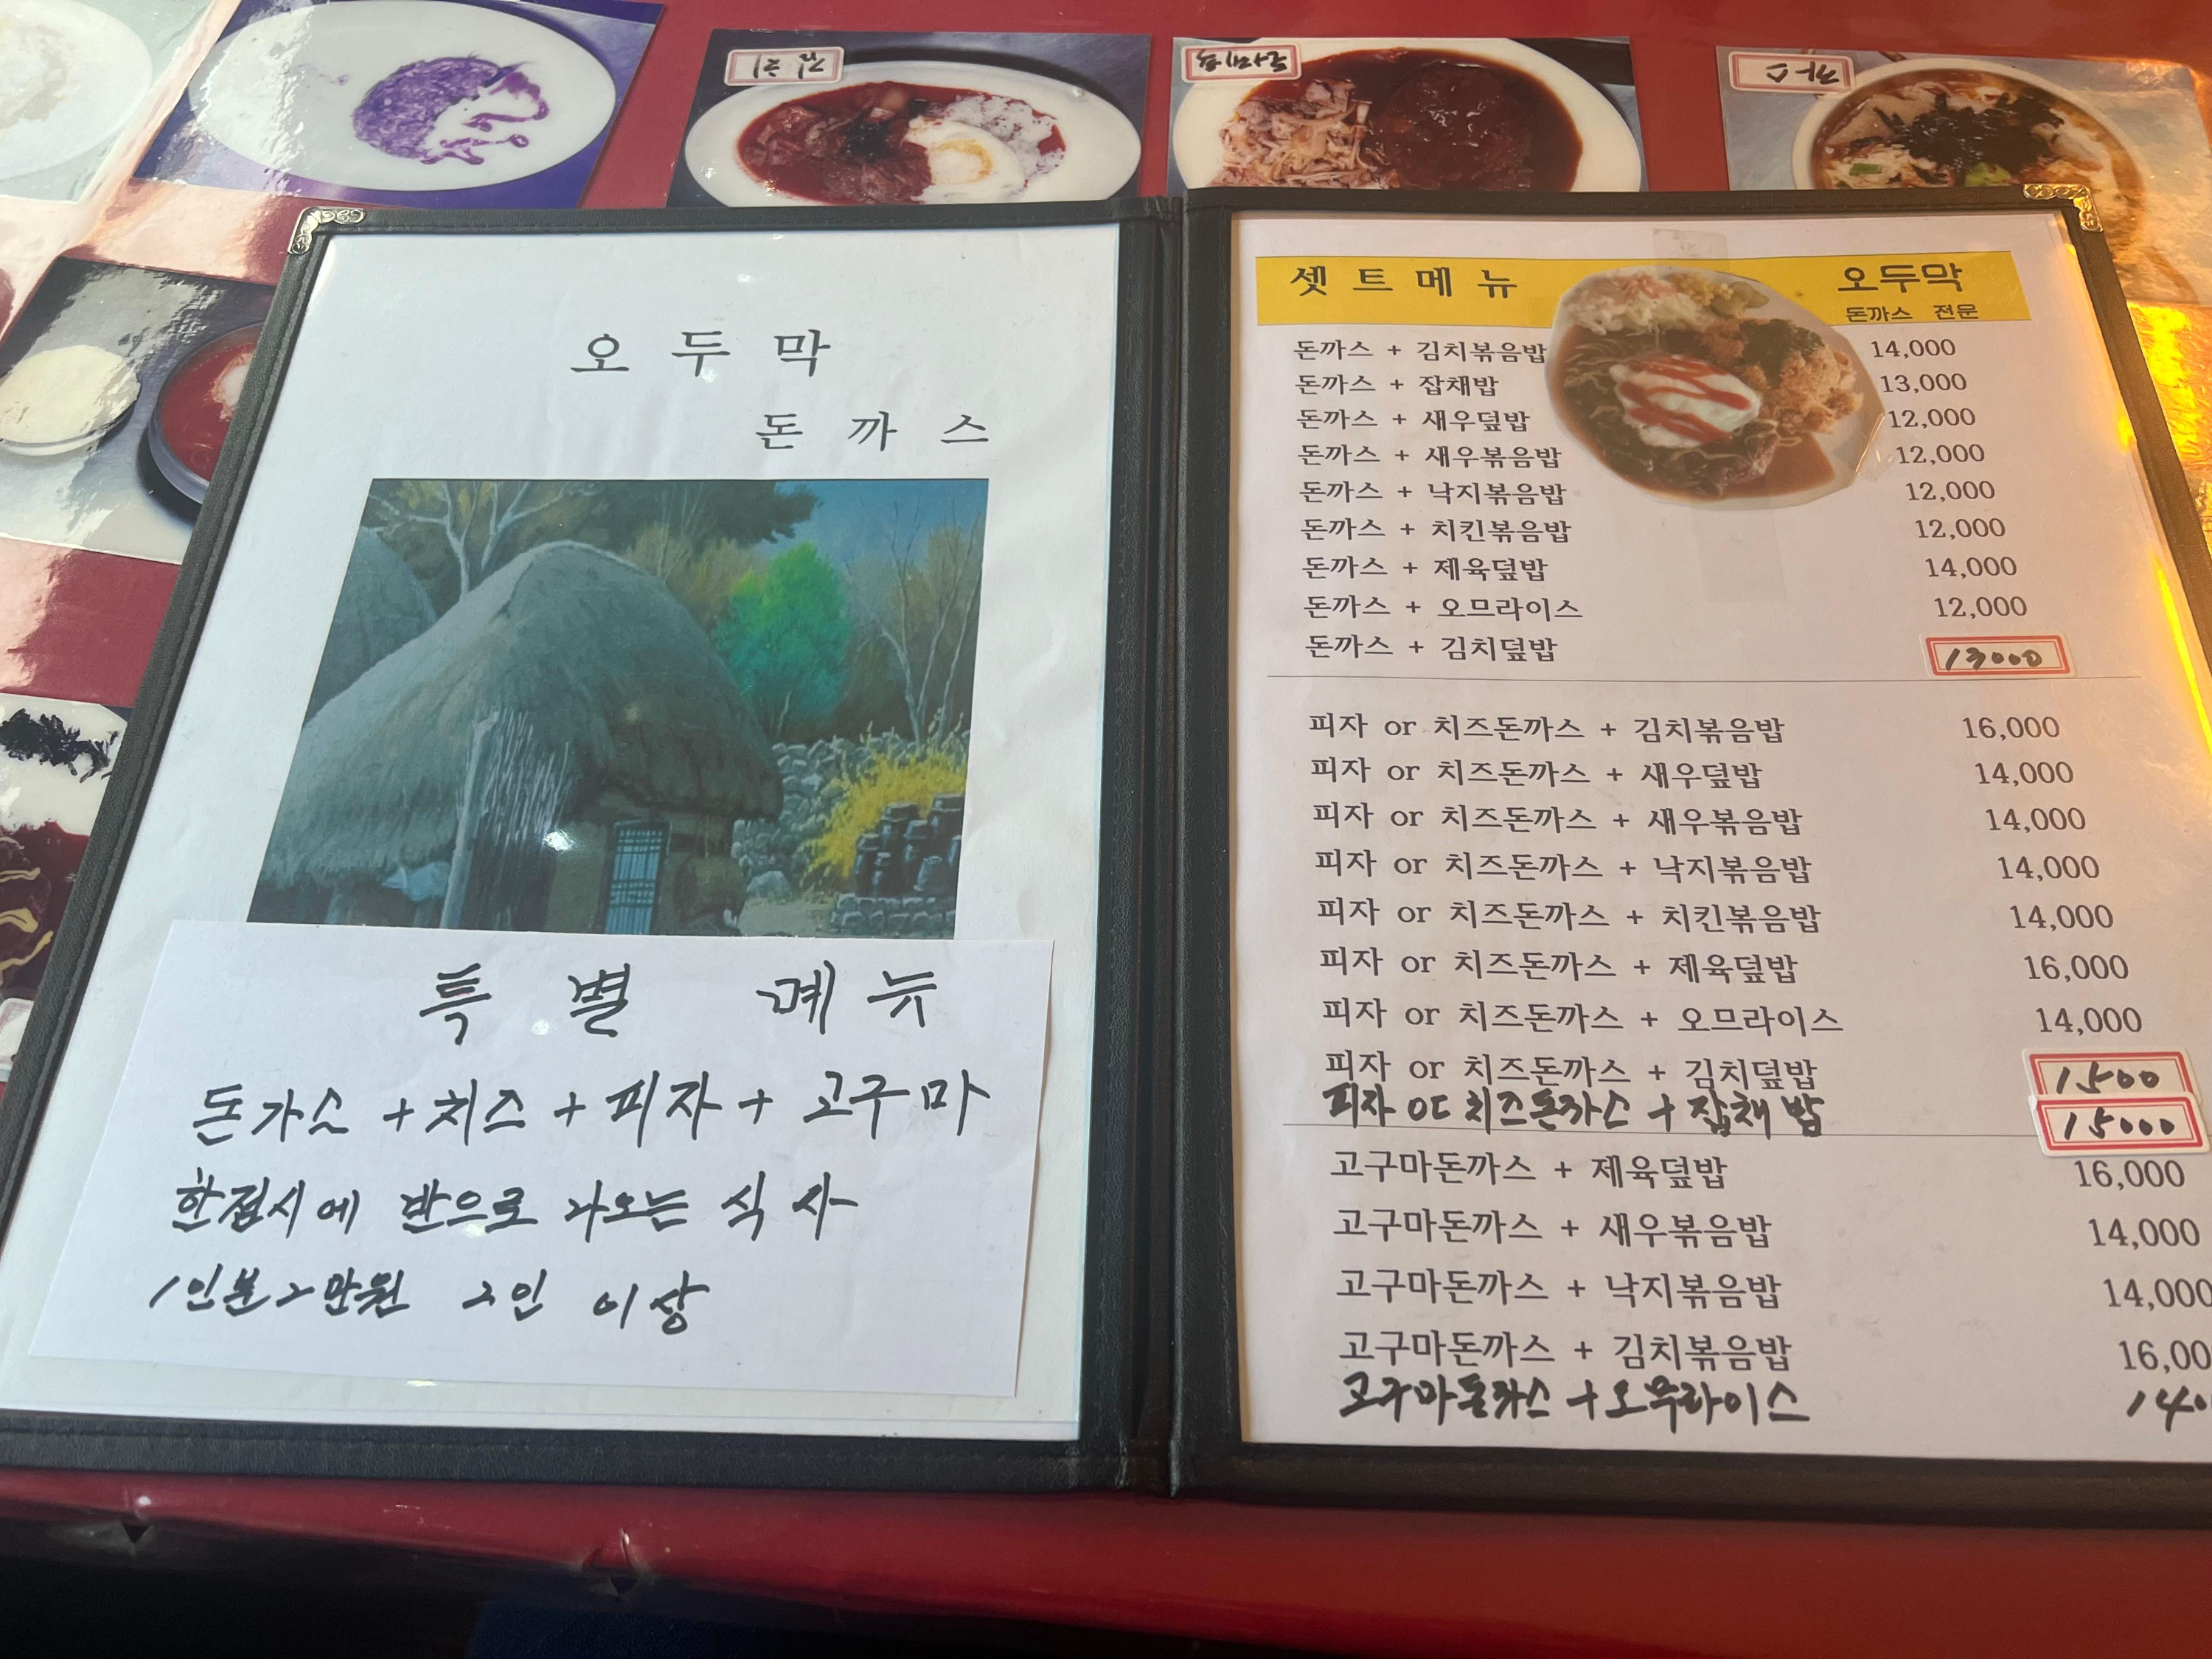 오두막
돈까스
특별 메뉴
돈가스 + 치즈 + 피자 + 고구마
한접시에 반으로 나오는 식사
1인분 2만원 2인 이상
셋트메뉴
오두막
돈까스 전문
돈까스 + 김치볶음밥 14,000
돈까스 + 잡채밥 13,000
돈까스 + 새우덮밥 12,000
돈까스 + 새우볶음밥 12,000
돈까스 + 낙지볶음밥 12,000
돈까스 + 치킨볶음밥 12,000
돈까스 + 제육덮밥 14,000
돈까스 + 오므라이스 12,000
돈까스 + 김치덮밥 13000
피자 or 치즈돈까스 + 김치볶음밥 16,000
피자 or 치즈돈까스 + 새우덮밥 14,000
피자 or 치즈돈까스 + 새우볶음밥 14,000
피자 or 치즈돈까스 + 낙지볶음밥 14,000
피자 or 치즈돈까스 + 치킨볶음밥 14,000
피자 or 치즈돈까스 + 제육덮밥 16,000
피자 or 치즈돈까스 + 오므라이스 14,000
피자 or 치즈돈까스 + 김치덮밥 1500
피자 or 치즈돈까스 + 잡채밥 15000
고구마돈까스 + 제육덮밥 16,000
고구마돈까스 + 새우볶음밥 14,000
고구마돈까스 + 낙지볶음밥 14,000
고구마돈까스 + 김치볶음밥 16,00
고구마돈까스 + 오무라이스 140